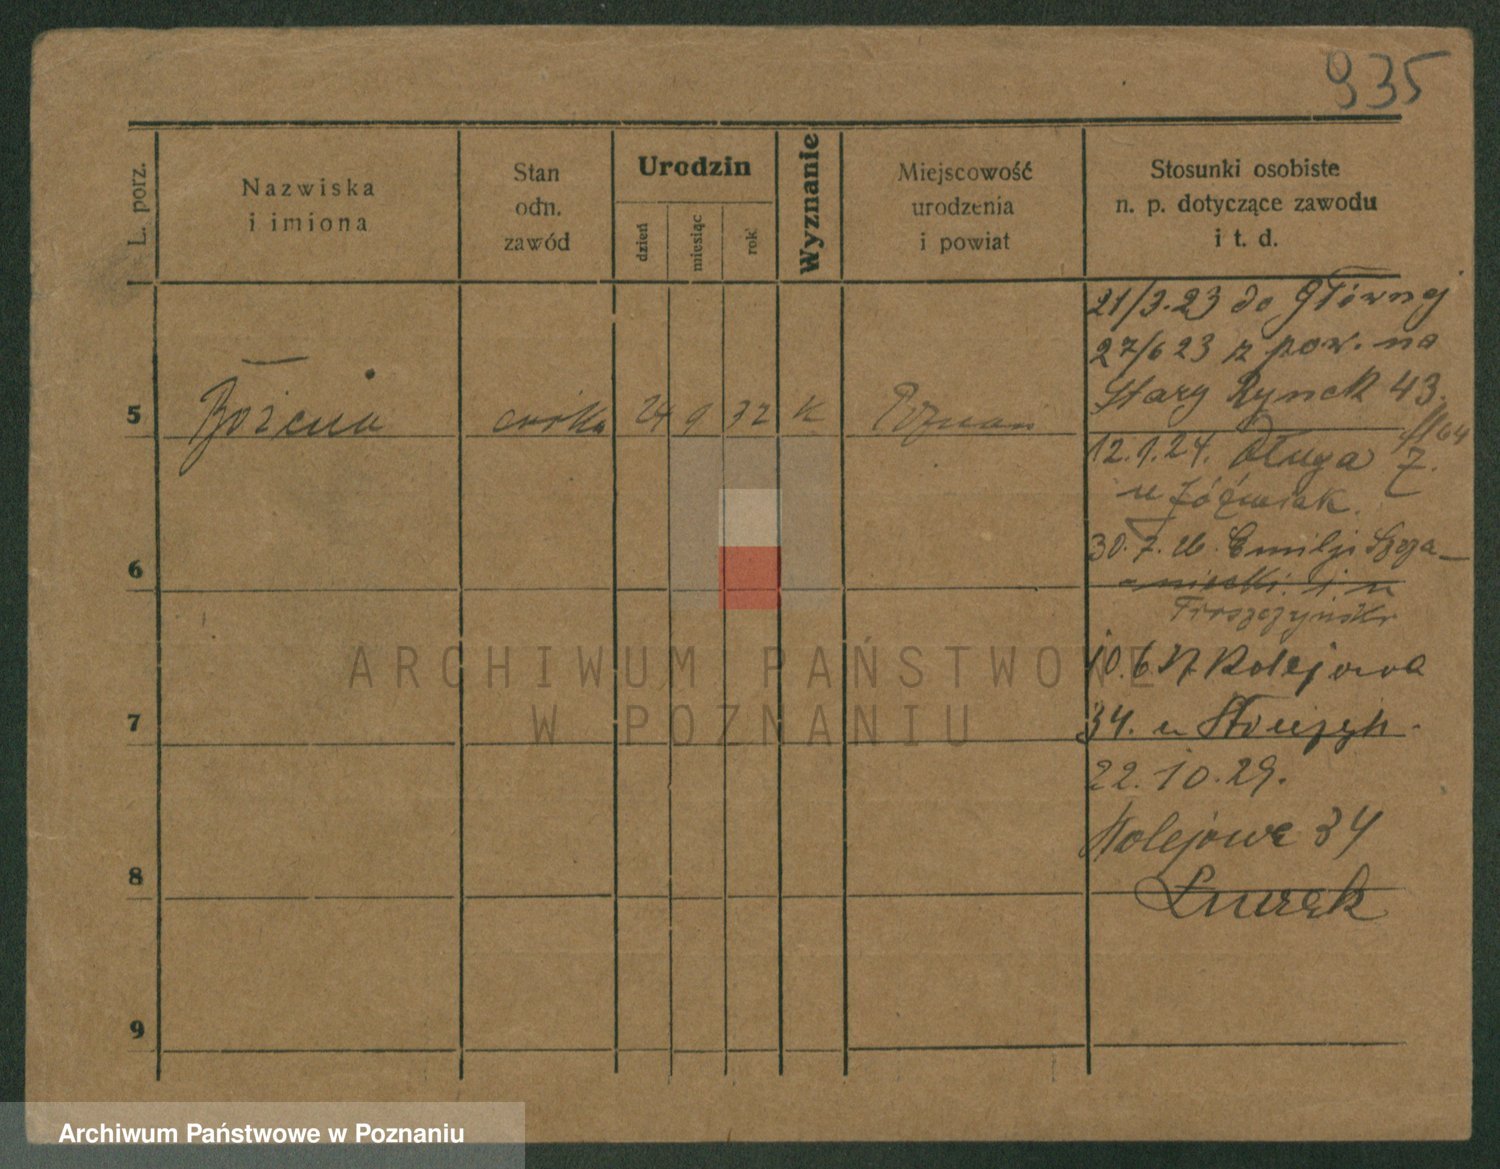 935
L. porz.
Nazwiska
i imiona
Stan
odn.
zawód
Urodzin
dzień
miesiąc
rok
Wyznanie
Miejscowość
urodzenia
i powiat
Stosunki osobiste
n. p. dotyczące zawodu
i t. d.
21/3.23 do Głównej
27/6 23 z pow. na
Stary Rynek 43.
5 Bożena córka 24 9 32 K Poznań
12.1.24. Długa 7.
u Jóźwiak.
30.7.26. Emilji Scza-
nieckiej
6
10.6.27 Kolejowa
34. u
7
22.10.29.
Kolejowa 34
8
9
ARCHIWUM PAŃSTWOWE
W POZNANIU
Archiwum Państwowe w Poznaniu